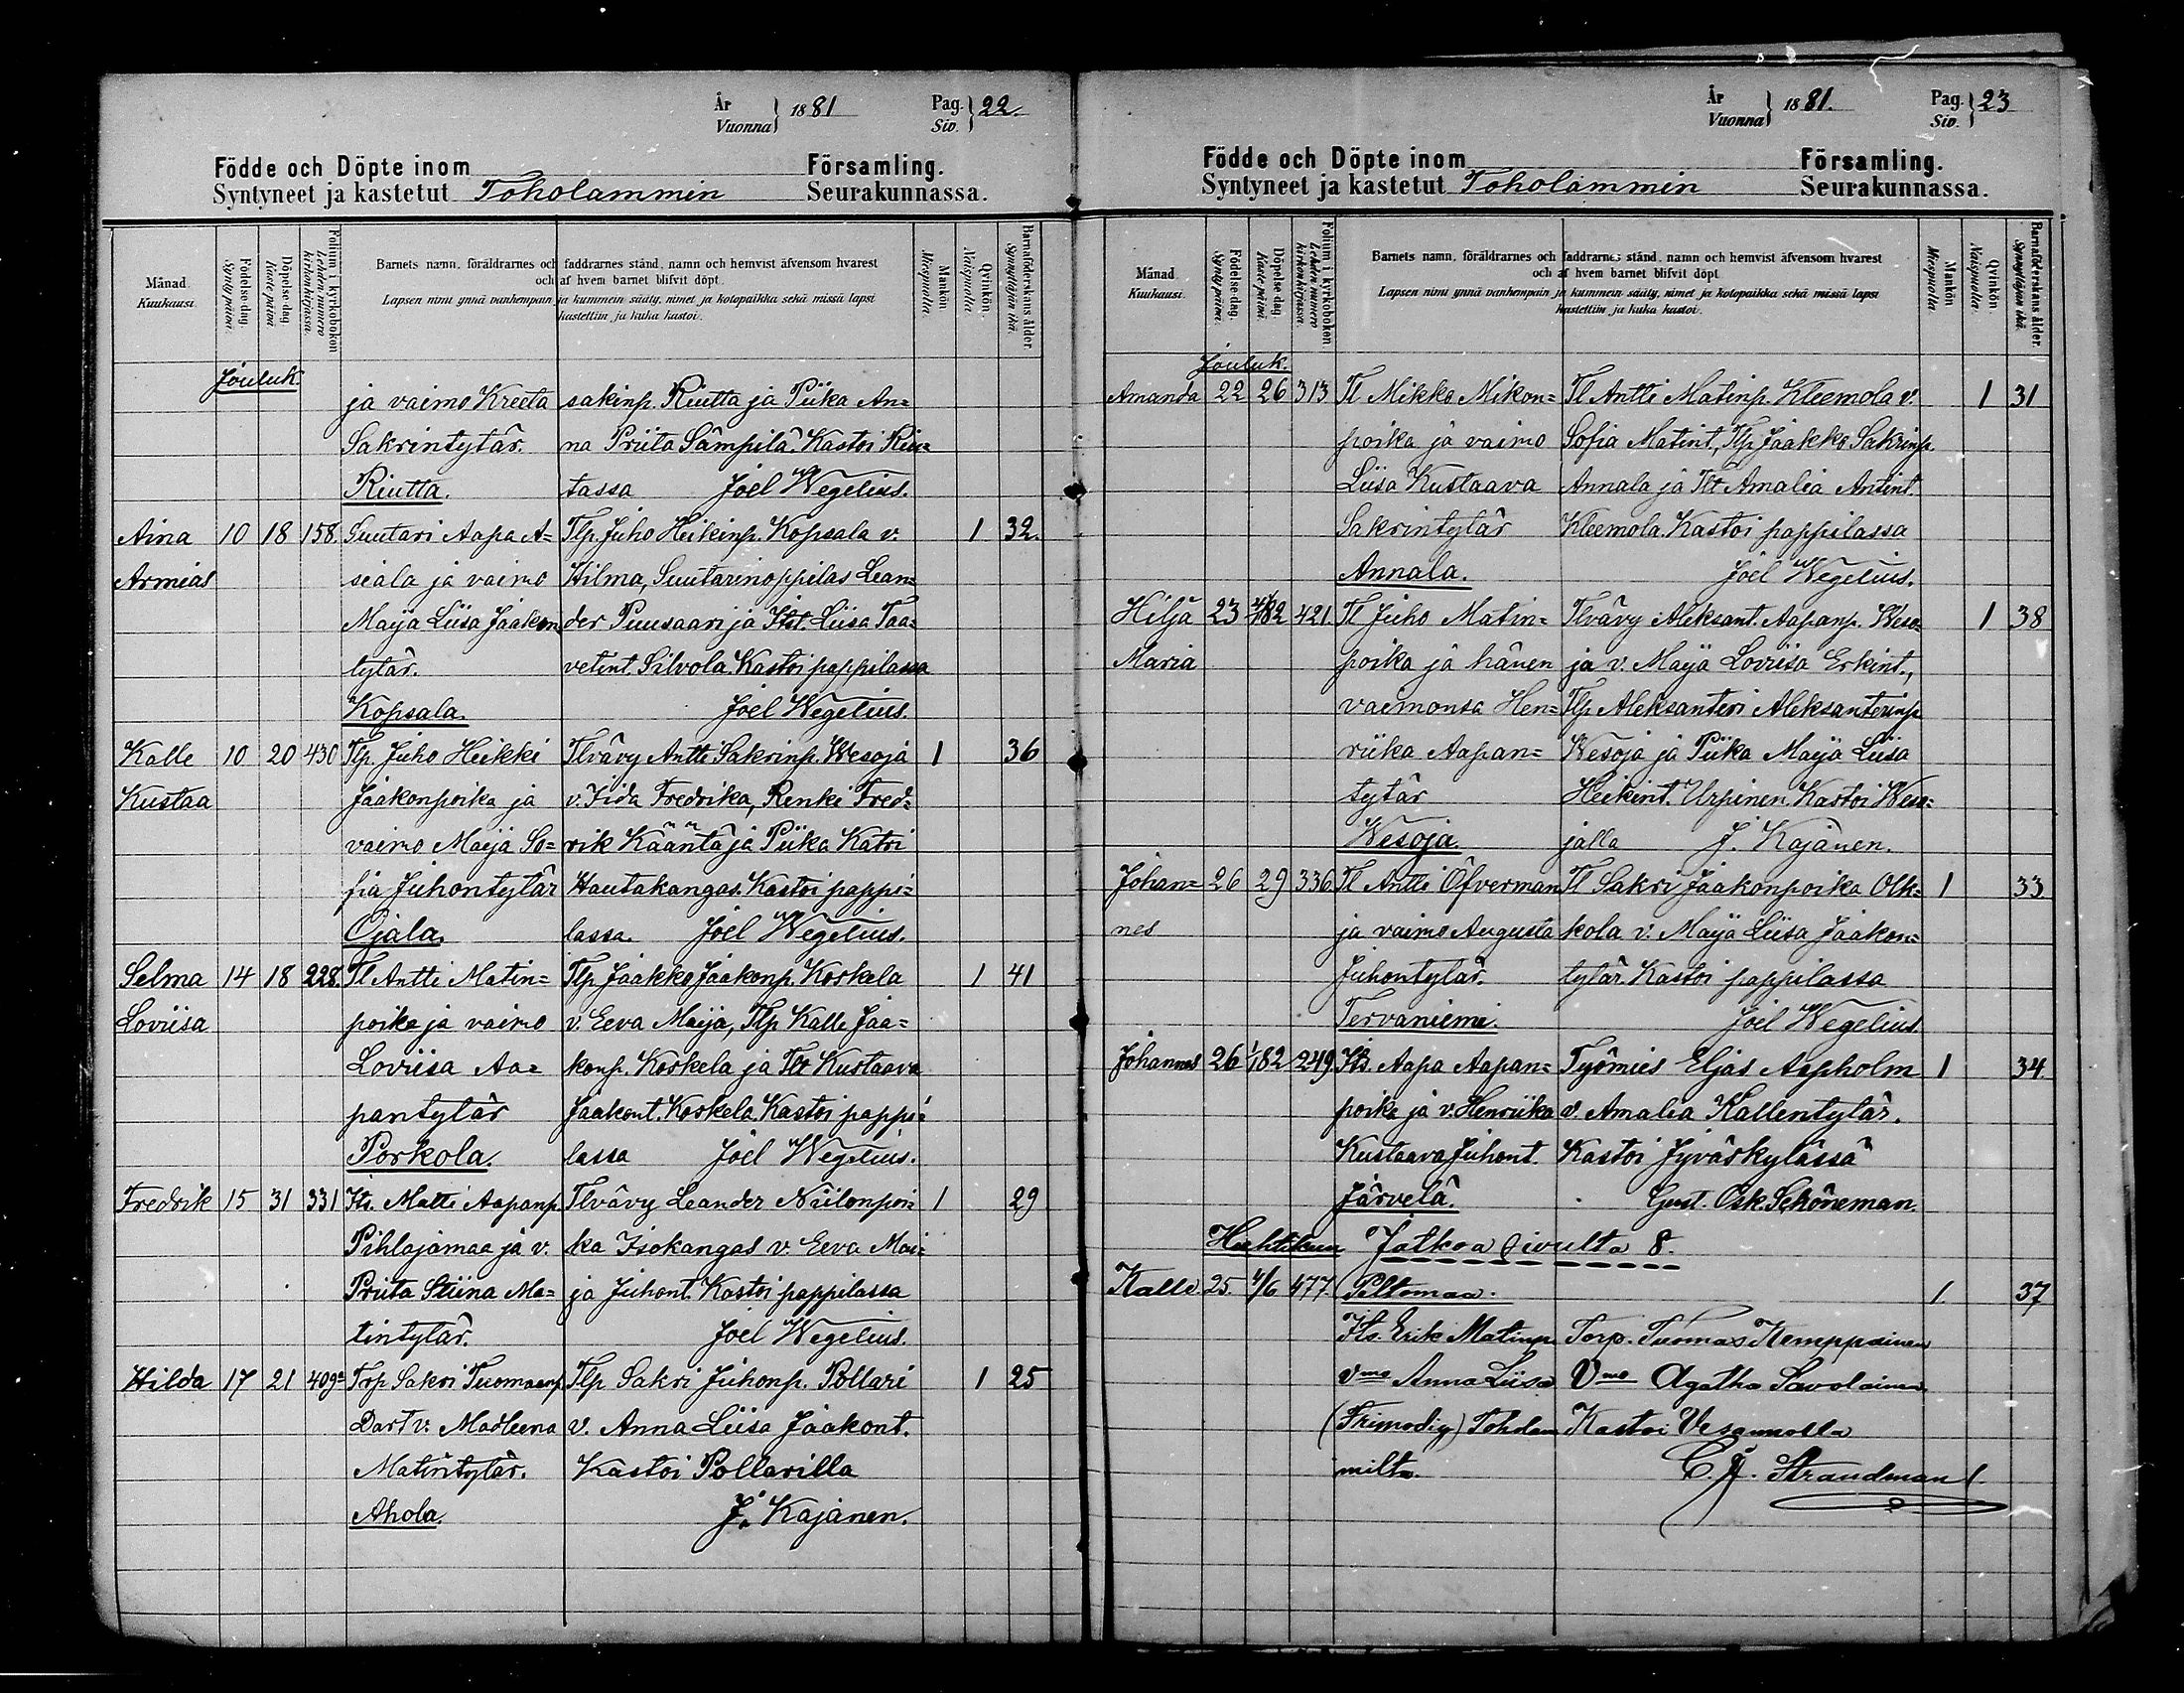 År
Vuonna } 1881 Pag.
Siv. } 22.
Födde och Döpte inom Församling.
Syntyneet ja kastetut Toholammin Seurakunnassa.
Månad
Kuukausi.
Födelse dag.
Synty päivä.
Döpelse dag
Kaste päivä
Folium i kyrkoboken
Lehden numero kirkonkirjassa.
Barnets namn, föräldrarnes och faddrarnes stånd, namn och hemvist äfvensom hvarest
och af hvem barnet blifvit döpt.
Lapsen nimi ynnä vanhempain ja kummein sääty, nimet ja kotopaikka sekä missä lapsi
kastettiin ja kuka kastoi.
Mankön
Miespuolta.
Qvinkön.
Naispuolta
Barnaföderskans ålder.
Synnyttäjän ikä.
Jouluk.
ja vaimo Kreeta sakinp. Riutta ja Piika An=
Sakrintytär. na Priita Sämpilä. Kastoi Riu=
Riutta. tassa Joel Wegelius.
Aina 10 18 158. Suutari Aapa A= Tlp. Juho Heikinp. Kopsala v. 1 32.
Armias siala ja vaimo Hilma, Suutarinoppilas Lean=
Maija Liisa Jaakon= der Puusaari ja Itst. Liisa Taa=
tytär. vetint. Silvola. Kastoi pappilassa
Kopsala. Joel Wegelius.
Kalle 10 20 430 Tlp. Juho Heikki Tlvävy Antti Sakrinp. Wesoja 1 36
Kustaa Jaakonpoika ja v. Iida Fredrika, Renki Fred=
vaimo Maija So= rik Kääntä ja Piika Katri
fia Juhontytär Hautakangas. Kastoi pappi=
Ojala. lassa. Joel Wegelius.
Selma 14 18 228. Tl Antti Matin= Tlp Jaakko Jaakonp. Koskela 1 41
Loviisa poika ja vaimo v. Eeva Maija, Tlp Kalle Jaa=
Loviisa Aa= konp. Koskela ja Tlt Kustaava
pantytär Jaakont. Koskela. Kastoi pappi=
Porkola. lassa Joel Wegelius.
Fredrik 15 31 331 Its. Matti Aapanp. Tlvävy Leander Niilonpoi= 1 29
Pihlajamaa ja v. ka Isokangas v. Eeva Mai=
Priita Stiina Ma= ja Juhont. Kastoi pappilassa
tintytär. Joel Wegelius.
Hilda 17 21 409a Trp Sakri Tuomaanp. Tlp Sakri Juhonp. Pollari 1 25
Dart v. Madleena v. Anna Liisa Jaakont.
Matintytär. Kastoi Pollarilla
Ahola. J. Kajanen.
År
Vuonna } 1881. Pag.
Siv. } 23
Födde och Döpte inom Församling.
Syntyneet ja kastetut Toholammin Seurakunnassa.
Månad
Kuukausi.
Födelse dag.
Synty päivä.
Döpelse dag
Kaste päivä.
Folium i kyrkoboken
Lehden numero kirkonkirjassa.
Barnets namn, föräldrarnes och faddrarnes stånd, namn och hemvist äfvensom hvarest
och af hvem barnet blifvit döpt.
Lapsen nimi ynnä vanhempain ja kummein sääty, nimet ja kotopaikka sekä missä lapsi
kastettiin ja kuka kastoi.
Mankön
Miespuolta.
Qvinkön.
Naispuolta.
Barnaföderskans ålder.
Synnyttäjän ikä.
Jouluk.
Amanda 22 26 313 Tl Mikko Mikon= Tl Antti Matinp. Kleemola v. 1 31
poika ja vaimo Sofia Matint., Tlp Jaakko Sakrinp.
Liisa Kustaava Annala ja Tlt Amalia Antint.
Sakrintytär Kleemola. Kastoi pappilassa
Annala. Joel Wegelius.
Hilja 23 421 Tl Juho Matin= Tlvävy Aleksant. Aapanp. Weso= 1 38
Maria poika ja hänen ja v. Maija Loviisa Erkint.,
vaimonsa Hen= Tlp Aleksanteri Aleksanterinp
riika Aapan= Wesoja ja Piika Maija Liisa
tytär Heikint. Urpinen. Kastoi Weso=
Wesoja. jalla J. Kajanen.
Johan= 26 29 336. Tl Antti Öfverman Tl Sakri Jaakonpoika Olk= 1 33
nes ja vaimo Augusta kola v. Maija Liisa Jaakon=
Juhontytär. tytär. Kastoi pappilassa
Tervaniemi. Joel Wegelius.
Johannes 26 1/182 249 Its. Aapa Aapan= Työmies Eljas Aspholm 1 34.
poika ja v. Henriika v. Amalia Kallentytär.
Kustaava Juhont. Kastoi Jyväskylässä
Järvelä. Gust. Osk. Schöneman.
Huhtikuu Jatkoa sivulta 8.
Kalle 25. 4/6 477. Peltomaa. 1 37
Its. Erik Matinp. Torp. Tuomas Kemppainen
vmo Anna Liisa Vmo Agatha Savolainen
(Frimodig) Toholam Kastoi Vesannolla
milta. C. J. Strandman